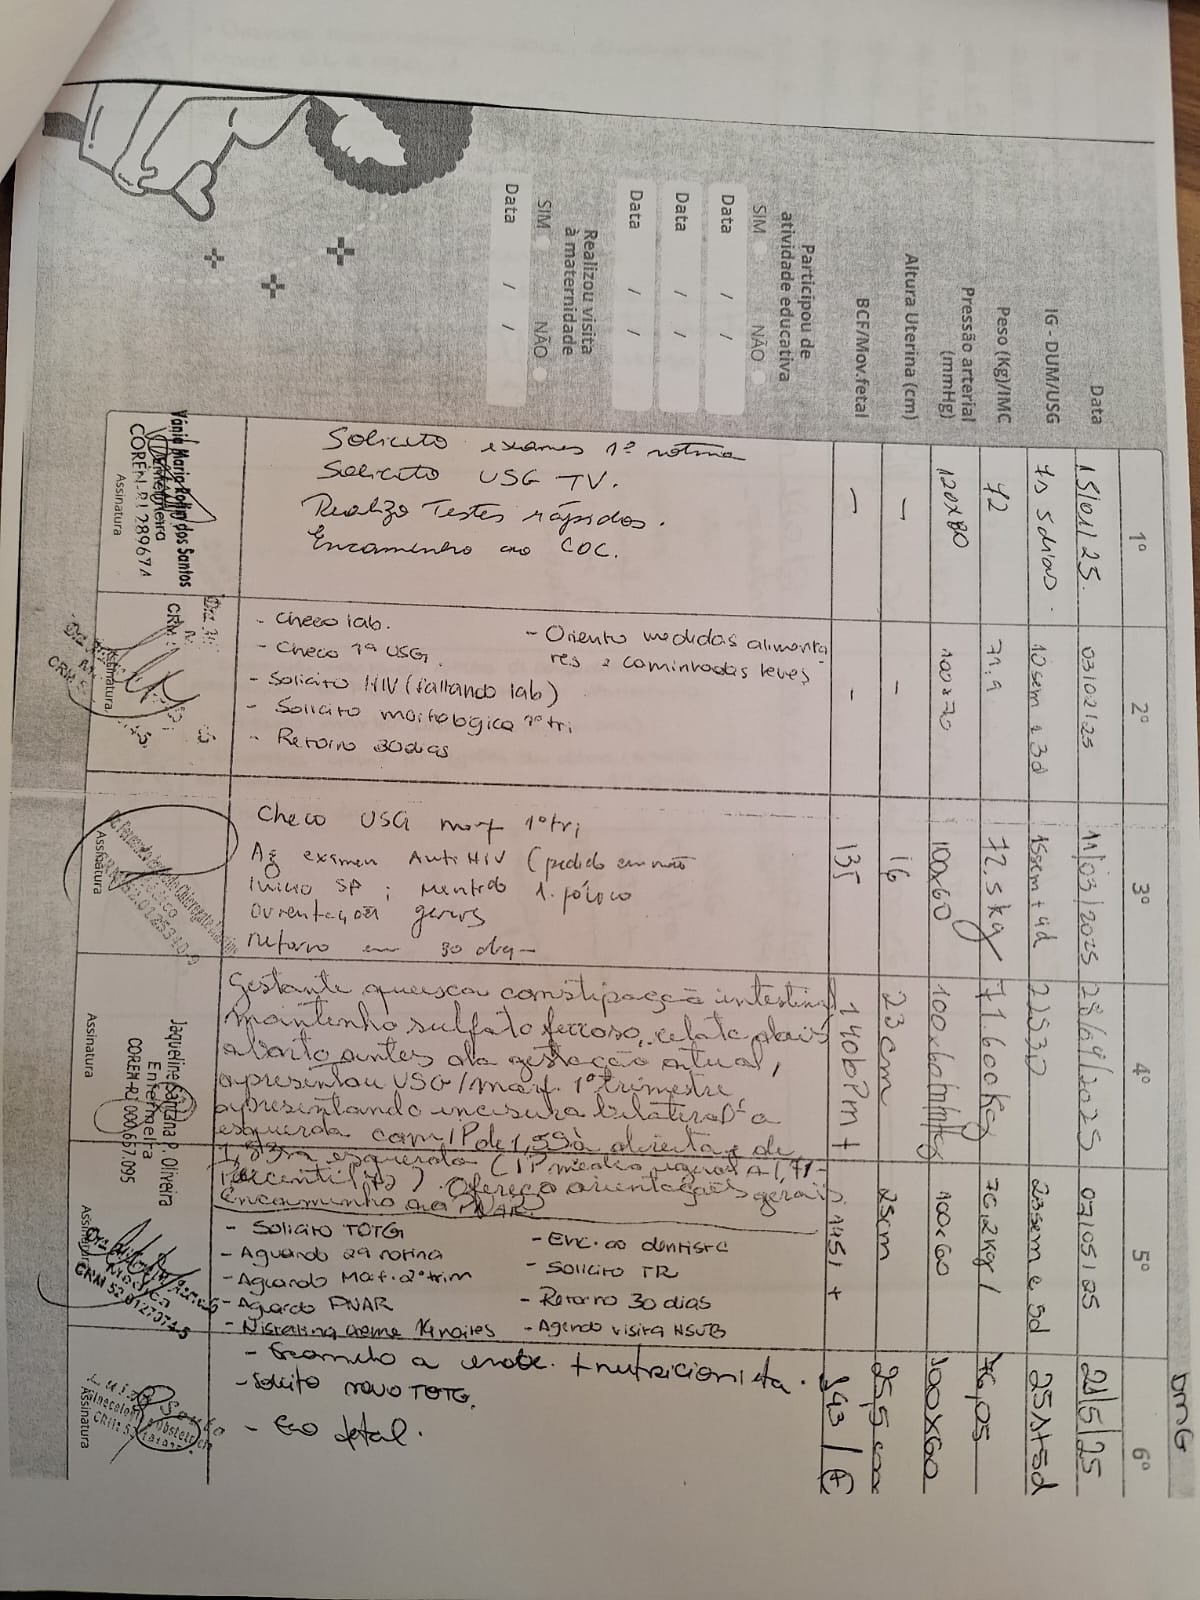 DMG
1º
2º
3º
4º
5º
6º
Data
15/01/25.
03/02/25
11/03/2025
28/04/2025
07/05/25
21/5/25
IG - DUM/USG
7s 5 dias.
10 sem e 3d
15sem + 4d
22S3D
23sem e 5d
25s+5d
Peso (Kg)/IMC
72
71,9
72.5kg
71.600Kg
76,2kg/
76,05
Pressão arterial
(mmHg)
120x80
100x70
100x60
100x60mmHg
100x60
100x60
Altura Uterina (cm)
—
-
16
23cm
25cm
25,5 cm
BCF/Mov.fetal
—
-
135
140bPm +
145/ +
143 / +
Participou de
atividade educativa
SIM NÃO
Data / /
Data / /
Data / /
Realizou visita
à maternidade
SIM NÃO
Data / /
Solicito exames 1ª rotina
Solicito USG TV.
Realizo Testes rápidos.
Encaminho ao COC.
Vânia Maria dos Santos
Enfermeira
COREN-RJ 289671
Assinatura
- Checo lab.
- Checo 1ª USG.
- Solicito HIV (faltando lab)
- Solicito morfológica 1º tri
- Retorno 30 dias
- Oriento medidas alimenta
res e caminhadas leves
Assinatura
Checo USG morf 1º tri
Ag exames Anti HIV (pedido em mão
Inicio SF ;
Orientações gerais
Retorno em 30 dias
Assinatura
Gestante queixa constipação intestinal,
mantenho sulfato ferroso, relata dois
aborto antes da gestação atual,
apresentou USG/morf. 1º trimestre
apresentando incisura bilateral a
esquerda com IP de 1,59 à direita e de
1,83 a esquerda (IP médio igual A 1,71-
Percentil ). Ofereço orientações gerais.
Encaminho ao PNAR.
Jaqueline Santana P. Oliveira
Enfermeira
COREN-RJ 000.657.095
Assinatura
- Solicito TOTG
- Aguardo 2ª rotina
- Aguardo Morf. 2º trim
- Aguardo PNAR
- Nistatina creme 14 noites
- Enc. ao dentista
- Solicito TR
- Retorno 30 dias
- Agendo visita
Médica
CRM 52
Assinatura
- Encaminho a endoc. + nutricionista.
- Solicito novo TOTG.
- Eco fetal.
Luiza Souto
Ginecologia e Obstetrícia
Assinatura